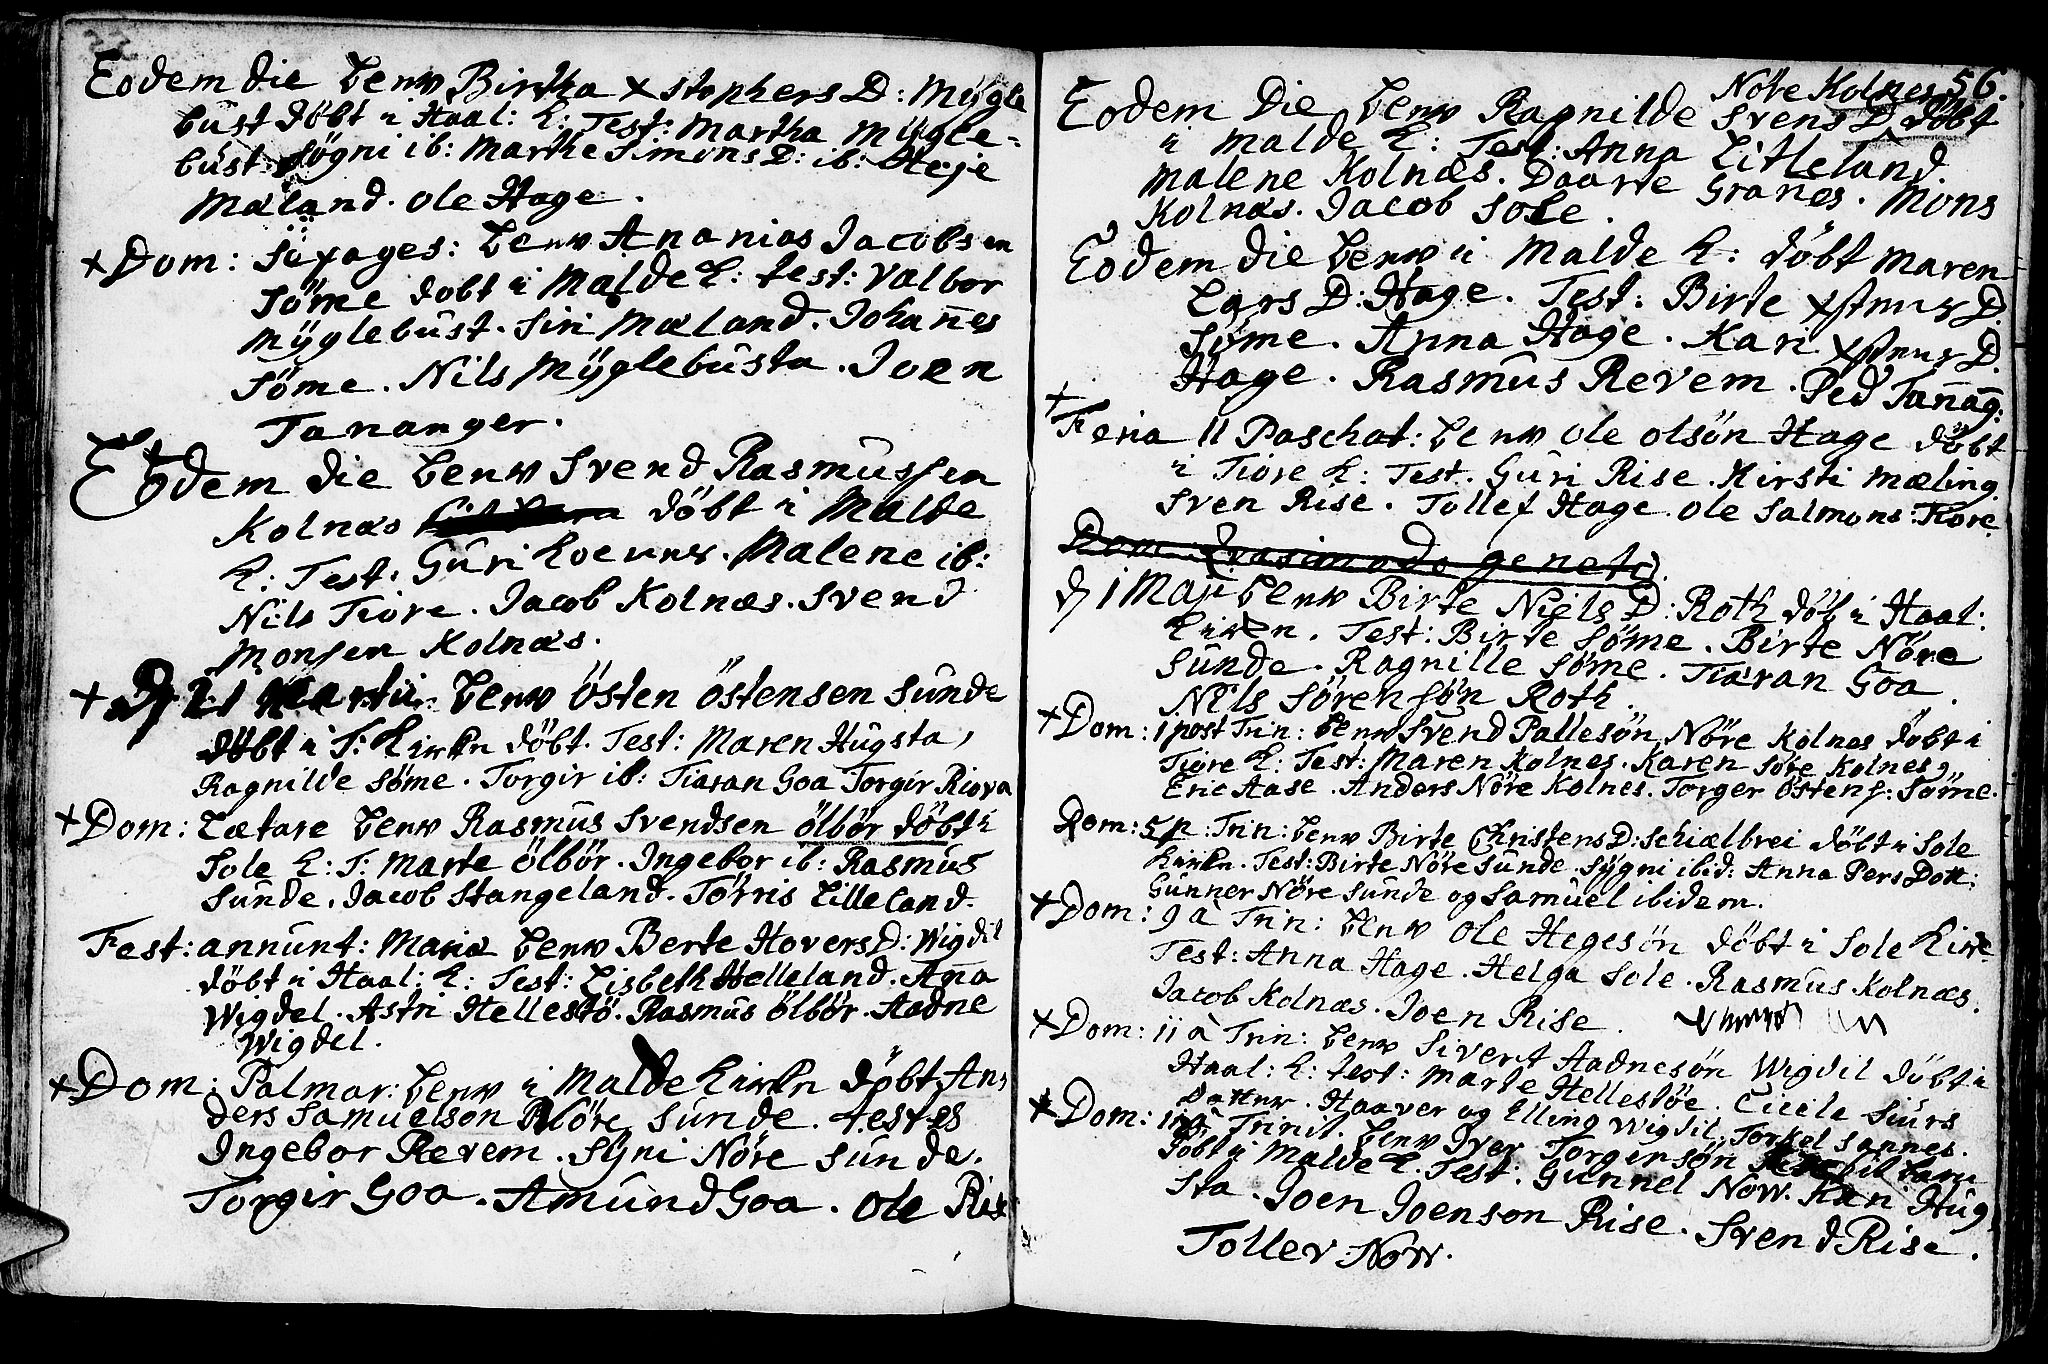 Eodem die benw Birtha Xstophers D: Mÿgle
bust döbt i Haal: K: Test: Martha Mÿgle=
bust. Sögni ib: Marthe Simons D: ib:
Mæland. Ole Hage.
+ Dom: Sexages: benw Ananias Jacobsen
Söme döbt i Malde K: test: Valbor
Mÿglebust. Siri Mæland. Johan̄es
Söme. Nils Mÿglebusta. Joen
Tananger.
Eodem die benw Svend Rasmussen
Kolnæs döbt i Malde
K: Test. Guri Malene ib:
Nils Tiore. Jacob Kolnæs. Svend
Monsen Kolnæs.
+ D 21 Martii benw Östen Östensen Sunde
döbt i S: Kirkn döbt. Test: Maren Hugsta,
Ragnilde Söme. Torgir ib: Tiaran Goa Torgir
+ Dom: Lætare benw Rasmus Svendsen Ölbör döbt i
Sole K: T: Marte Ölbör. Ingebor ib: Rasmus
Sunde. Jacob Stangeland. Törris Lilleland.
Fest: annunt: Mariæ benw Berte Hovers D: Wigdil
döbt i Haal: K: Test: Lisbeth Helleland. An̄a
Wigdel. Astri Hellestö. Rasmus Ölbör. Aadne
Wigdel.
+ Dom: Palmar: benw i Malde Kirkn döbt An,
ders Samuelson Nöre Sunde. testes
Ingebor Revem. Sÿni Nöre Sunde.
Torgir Goa. Amund Goa. Ole Rise
56.
Nöre Kolnes
Eodem Die benw Ragnilde Svens D döbt
i Malde K: Test: Anna Litleland
Malene Kolnæs. Daarte Granes. Mons
Kolnæs. Jacob Sole.
Eodem die benw i Malde K: döbt Maren
Lars D: Hage. Test: Birte D.
Söme. Anna Hage. Kari D.
Hage. Rasmus Revem. Ped Tan̄ag:
+ Feria II Paschat: benw Ole Olsön Hage döbt
i Tiore K: Test. Guri Rise. Kirsti Mæling.
Sven Rise. Tollef Hage. Ole Salmons: Tiore.
Dom: Qvasimodo geneti
D 1 Maji benw Birte Niels D: Roth döb i Haal:
Kirken. Test: Birte Söme. Birte Nöre
Sunde. Ragnille Söme. Tiaran Goa.
Nils Sörensön Roth.
+ Dom: 1 post Trin: benw Svend Pallesön Nöre Kolnes döbt i
Tiore K: Test: Maren Kolnes. Karen Söre Kolnes,
Eric Aase. Anders Nöre Kolnes. Torger Östens: Söme.
Dom: 5 p: Trin: benw Birte Christens D: Schiælbrei döbt i Sole
Kirkn. Test: Birte Nöre Sunde. Sÿgni ibid: Anna Pers Dott:
Gunner Nöre Sunde og Samuel ibidem.
+ Dom: 9 à Trin: benw Ole Hegesön döbt i Sole Kirke.
Test: Anna Hage. Helga Sole. Rasmus Kolnæs.
Jacob Kolnæs. Joen Rise.
+ Dom: 11 à Trin: benw Sivert Aadnesön Wigdil döbt i
Haal: K: test: Marte Hellestöe. Cicele Siurs
Datter. Haaver og Elling Wigdil. Torkel Sannes.
+ Dom: à Trinit. benw Iver Torgersön
döbt i Malde K. Test: Gunnel Now. Kari Hug
sta. Joen Joenson Rise. Svend Rise.
Tollev Now.